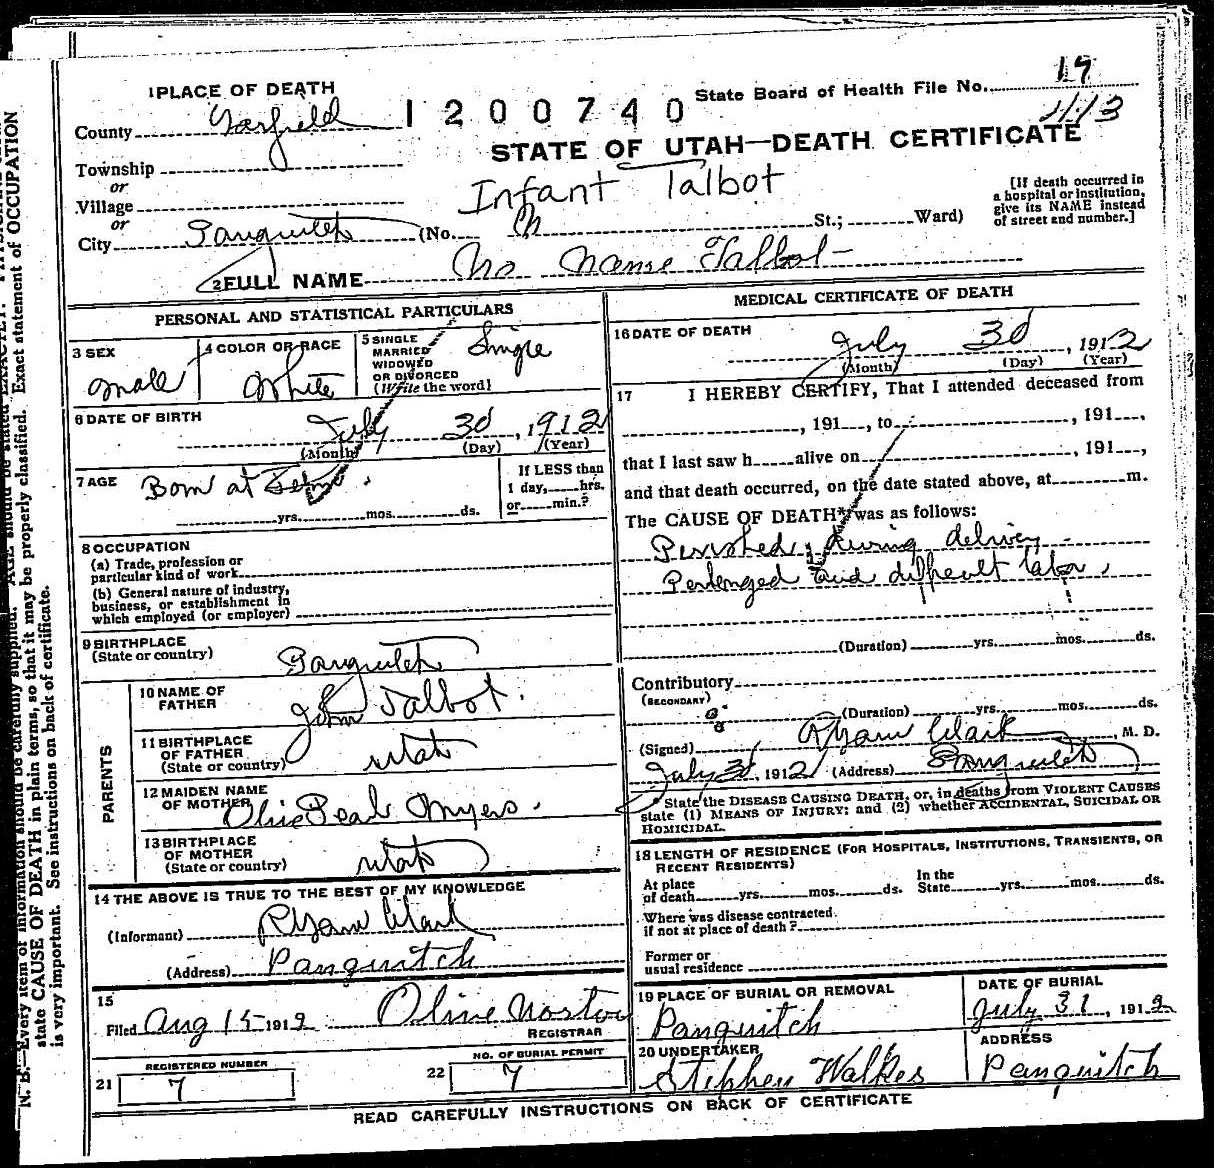 1 PLACE OF DEATH
State Board of Health File No. 19
County Garfield
1200740
11/13
STATE OF UTAH—DEATH CERTIFICATE
Township
or
Village
Infant Talbot
[If death occurred in
a hospital or institution,
give its NAME instead
of street and number.]
or
City Panguitch (No. St.; Ward)
2 FULL NAME No Name Talbot
PERSONAL AND STATISTICAL PARTICULARS
3 SEX
male
4 COLOR OR RACE
White
5 SINGLE
MARRIED
WIDOWED
OR DIVORCED
(Write the word)
Single
6 DATE OF BIRTH
July 30, 1912
(Month) (Day) (Year)
7 AGE
Born at Term.
yrs. mos. ds.
If LESS than
1 day, hrs.
or min.?
8 OCCUPATION
(a) Trade, profession or
particular kind of work
(b) General nature of industry,
business, or establishment in
which employed (or employer)
9 BIRTHPLACE
(State or country) Panguitch
PARENTS
10 NAME OF
FATHER
John Talbot.
11 BIRTHPLACE
OF FATHER
(State or country) utah
12 MAIDEN NAME
OF MOTHER Olive Pearl Myers.
13 BIRTHPLACE
OF MOTHER
(State or country) utah
14 THE ABOVE IS TRUE TO THE BEST OF MY KNOWLEDGE
(Informant) R Garn Clark
(Address) Panguitch
15
Filed Aug 15 1912 Olive Norton
REGISTRAR
21 REGISTERED NUMBER
7
22 NO. OF BURIAL PERMIT
7
MEDICAL CERTIFICATE OF DEATH
16 DATE OF DEATH
July 30, 1912
(Month) (Day) (Year)
17 I HEREBY CERTIFY, That I attended deceased from
, 191 , to , 191 ,
that I last saw h alive on , 191 ,
and that death occurred, on the date stated above, at m.
The CAUSE OF DEATH* was as follows:
Perished during delivery
Prolonged and difficult labor.
(Duration) yrs. mos. ds.
Contributory
(SECONDARY)
(Duration) yrs. mos. ds.
(Signed) R Garn Clark, M. D.
July 30, 1912 (Address) Panguitch
* State the DISEASE CAUSING DEATH, or, in deaths from VIOLENT CAUSES
state (1) MEANS OF INJURY; and (2) whether ACCIDENTAL, SUICIDAL OR
HOMICIDAL.
18 LENGTH OF RESIDENCE (FOR HOSPITALS, INSTITUTIONS, TRANSIENTS, OR
RECENT RESIDENTS)
At place
of death yrs. mos. ds.
In the
State yrs. mos. ds.
Where was disease contracted.
if not at place of death?
Former or
usual residence
19 PLACE OF BURIAL OR REMOVAL
Panguitch
DATE OF BURIAL
July 31, 1912
20 UNDERTAKER
Stephen Walkes
ADDRESS
Panguitch
READ CAREFULLY INSTRUCTIONS ON BACK OF CERTIFICATE
N. B.—Every item of information should be carefully supplied. AGE should be stated EXACTLY.
state CAUSE OF DEATH in plain terms, so that it may be properly classified. Exact statement of OCCUPATION
is very important. See instructions on back of certificate.